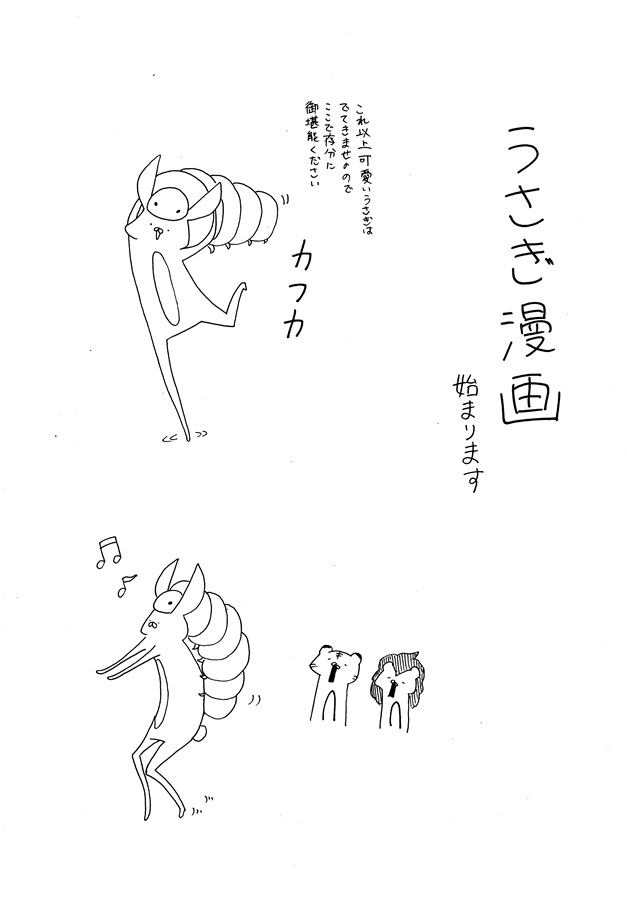 うさぎ漫画
始まります
これ以上可愛いうさぎは
でてきませんので
ここで存分に
御堪能ください
カフカ